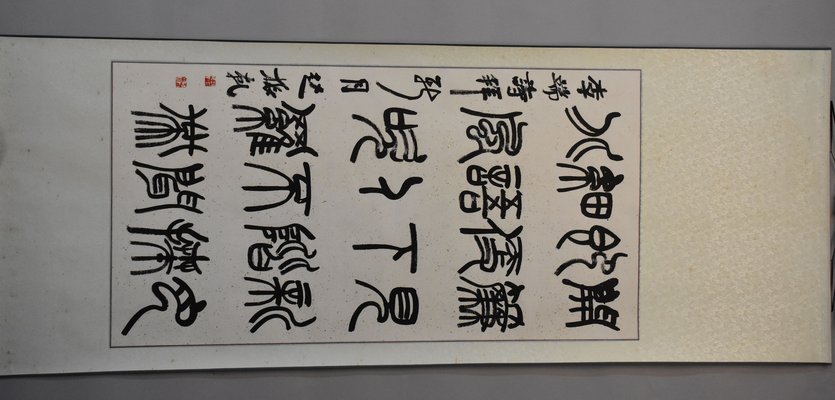 開簾見新月
即便下階拜
細語人不聞
北風吹羅帶
李端詩拜新月